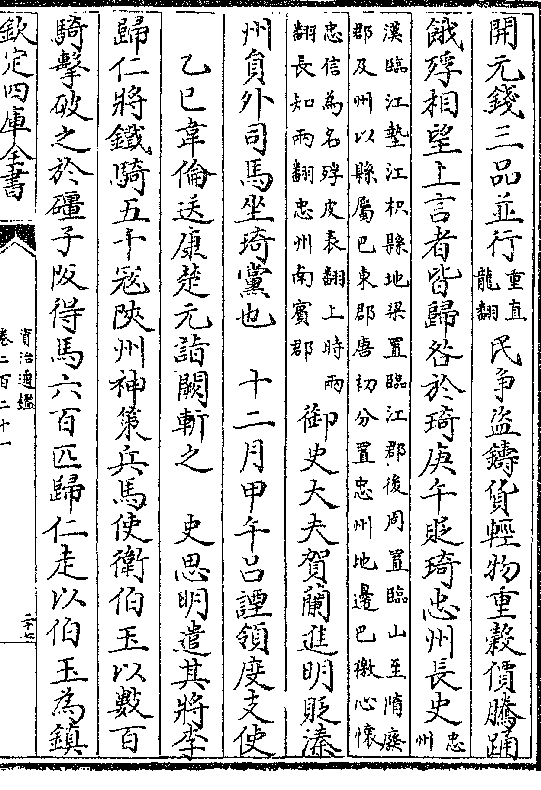 開元錢三品並行重直龍翻民爭盜鑄貨輕物重穀價騰踊
餓殍相望上言者皆歸咎於琦庚午貶琦忠州長史忠州
漢臨江墊江枳縣地梁置臨江郡後周置臨山至隋廢
郡及州以縣屬巴東郡唐初分置忠州地邊巴徼心懷
忠信為名殍皮表翻上時兩
翻長知兩翻忠州南賓郡
御史大夫賀蘭進明貶溱
州員外司馬坐琦黨也 十二月甲午呂諲領度支使
乙巳韋倫送康楚元詣闕斬之 史思明遣其將李
歸仁將鐵騎五千寇陜州神策兵馬使衛伯玉以數百
騎擊破之於礓子阪得馬六百匹歸仁走以伯玉為鎮
欽定四庫全書
資治通鑑
卷二百二十一